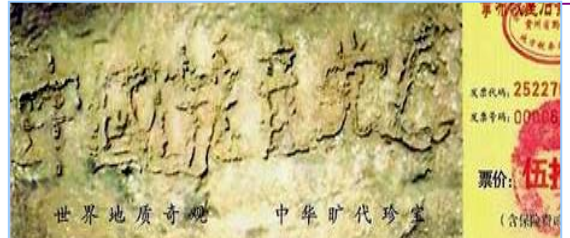 中國共产党亡
世界地质奇观 中华旷代珍宝
贵州省
发票代码: 25227
发票号码: 0000
票价: 伍
(含保险费